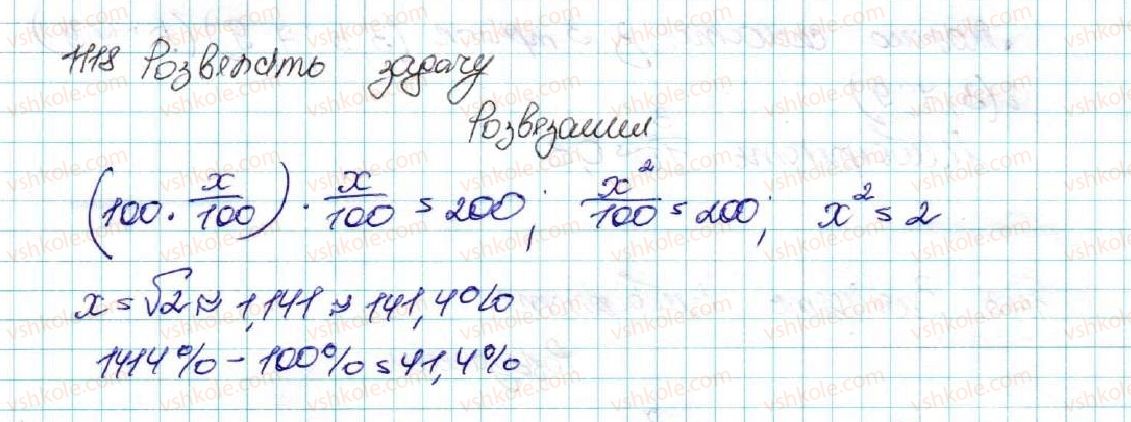 1118 Розвежіть задачу
Розвезання
(100 · x/100) · x/100 = 200; x²/100 = 200; x² = 2
x = √2 ≈ 1,141 ≈ 141,4%
1414% - 100% = 41,4%
vshkole.com